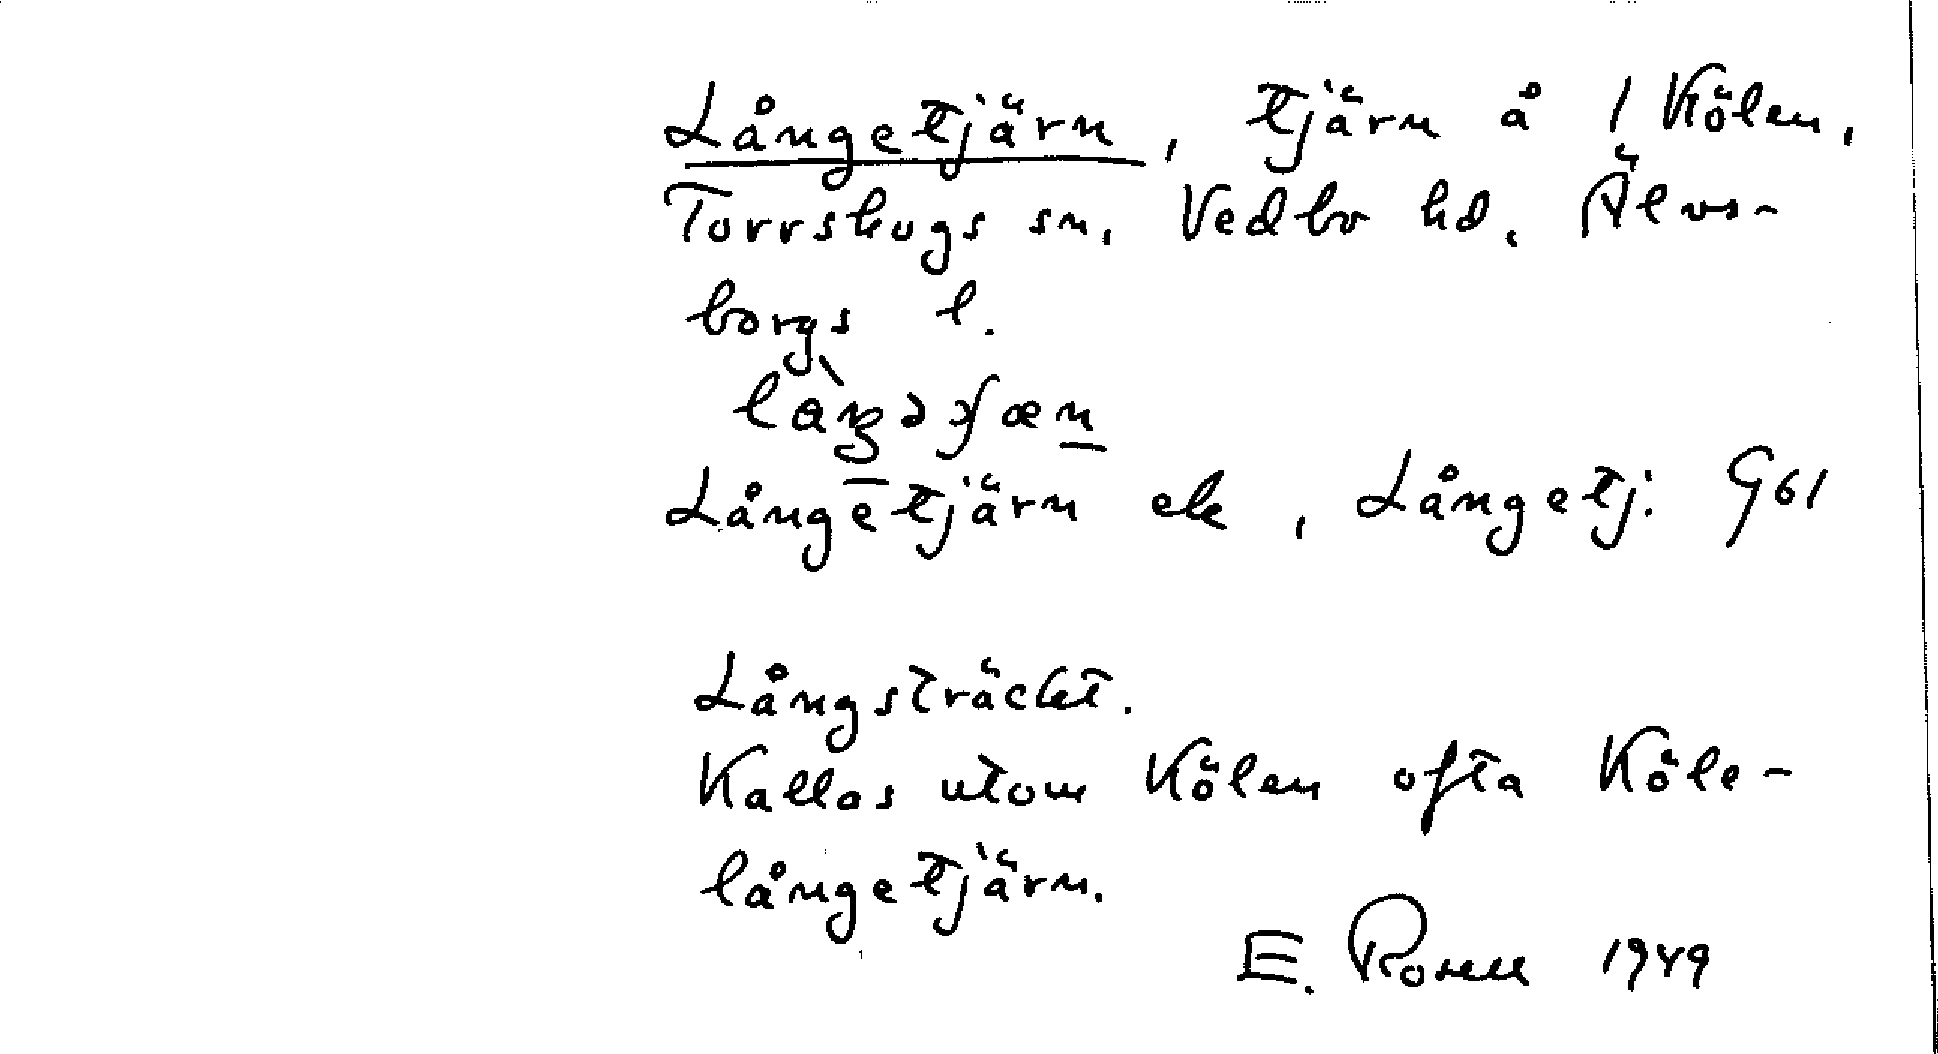 Långetjärn, tjärn å 1 Kölen,
Torrskogs sn, Vedbo hd, Älvs-
borgs l.
Långetjärn ek, Långetj: G61
Långsträckt.
Kallas utom Kölen ofta Köle-
långetjärn.
E. Rosell 1949